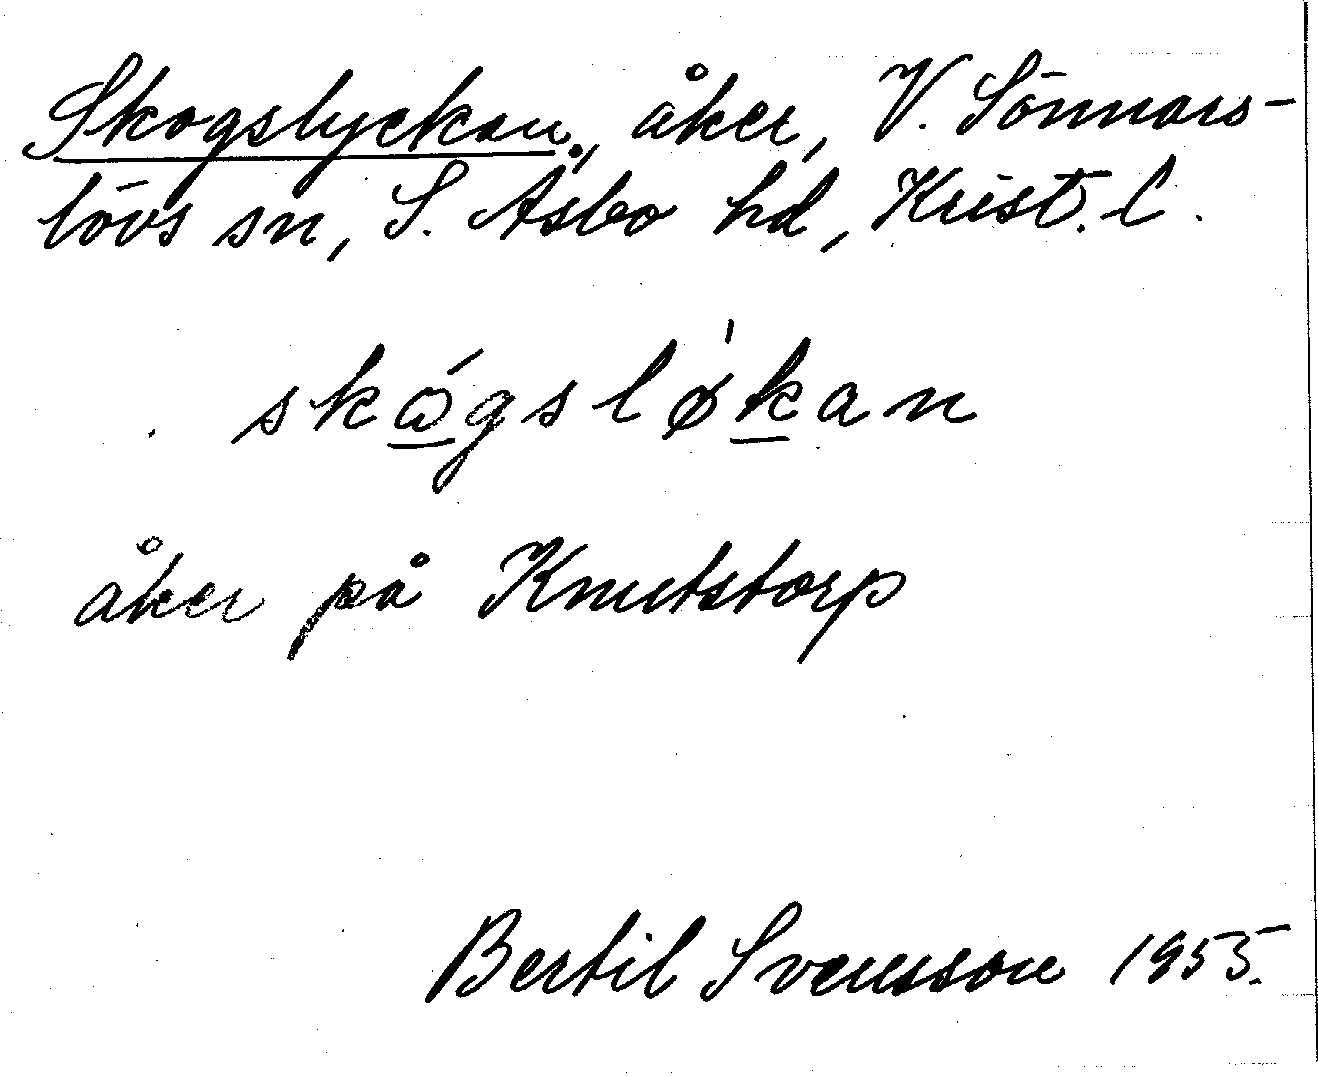 Skogslyckan, åker, V. Sönnars-
lövs sn, S. Åsbo hd, Krist. l.
skώ̲gslø̀k̲an
åker på Knutstorp
Bertil Svensson 1955.